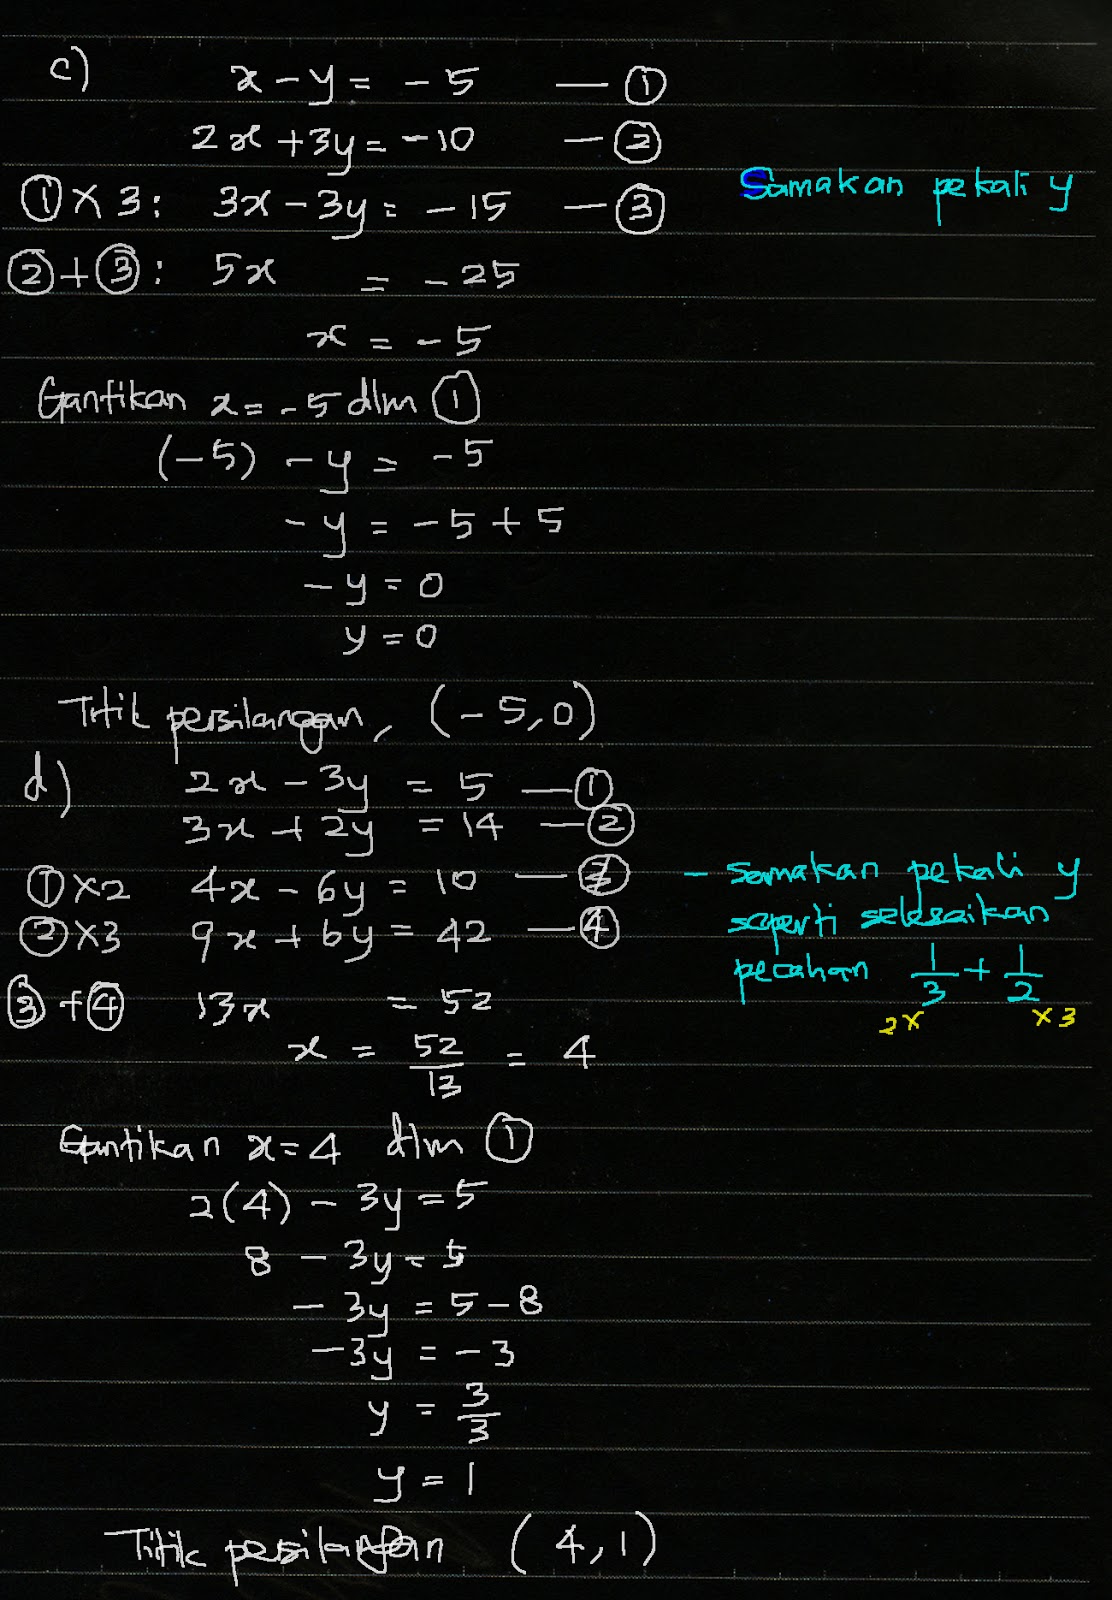 c) x - y = - 5 — ①
2x + 3y = - 10 — ②
① × 3: 3x - 3y = - 15 — ③ Samakan pekali y
② + ③: 5x = - 25
x = - 5
Gantikan x = - 5 dlm ①
(-5) - y = - 5
- y = - 5 + 5
- y = 0
y = 0
Titik persilangan, (- 5, 0)
d) 2x - 3y = 5 — ①
3x + 2y = 14 — ②
① × 2 4x - 6y = 10 — ③ - samakan pekali y
② × 3 9x + 6y = 42 — ④ seperti selesaikan
pecahan 1/3 + 1/2
2× ×3
③ + ④ 13x = 52
x = 52/13 = 4
Gantikan x = 4 dlm ①
2(4) - 3y = 5
8 - 3y = 5
- 3y = 5 - 8
- 3y = - 3
y = 3/3
y = 1
Titik persilangan (4, 1)